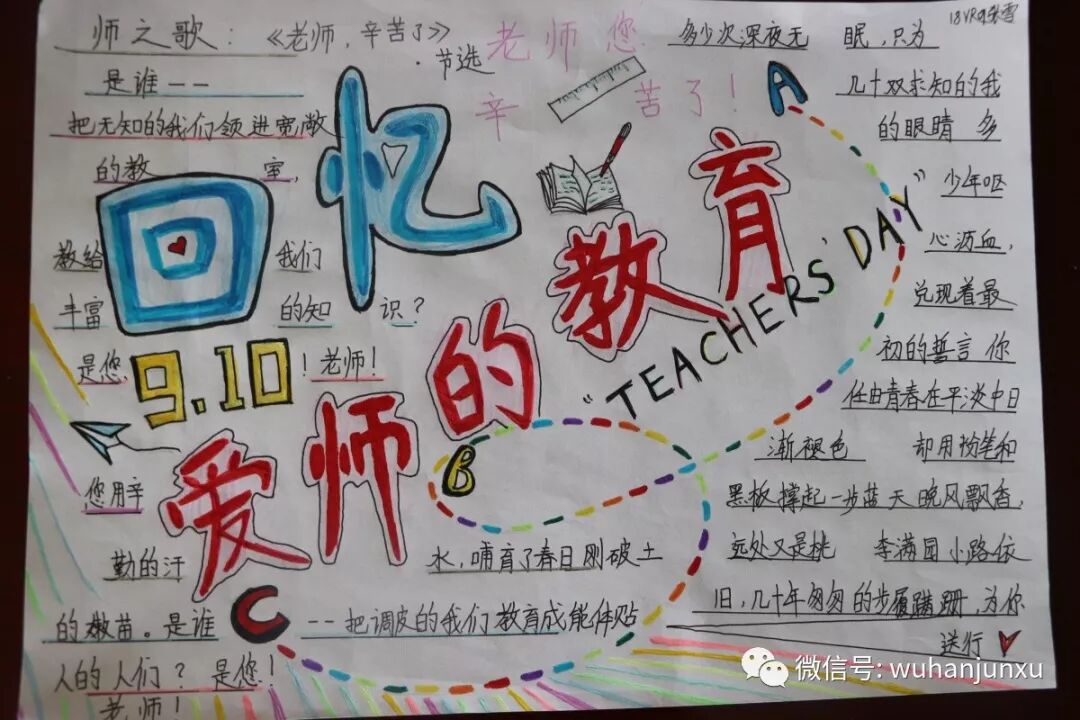 师之歌：《老师，辛苦了》
·节选
是谁——
把无知的我们领进宽敞
的教室，
教给我们
丰富的知识？
是您，！老师！
您用辛
勤的汗水，哺育了春日刚破土
的嫩苗。是谁——把调皮的我们教育成能体贴
人的人们？是您！
老师！
老师您
辛苦了！
回忆
9.10
爱师的教育
"TEACHERS' DAY"
A
B
C
多少次深夜无眠，只为
几十双求知的我
的眼睛 多
少年呕
心沥血，
兑现着最
初的誓言 你
任由青春在平淡中日
渐褪色 却用粉笔和
黑板撑起一步蓝天晚风飘香，
远处又是桃李满园小路依
旧，几十年匆匆的步履蹒跚，为你
送行
微信号: wuhanjunxu